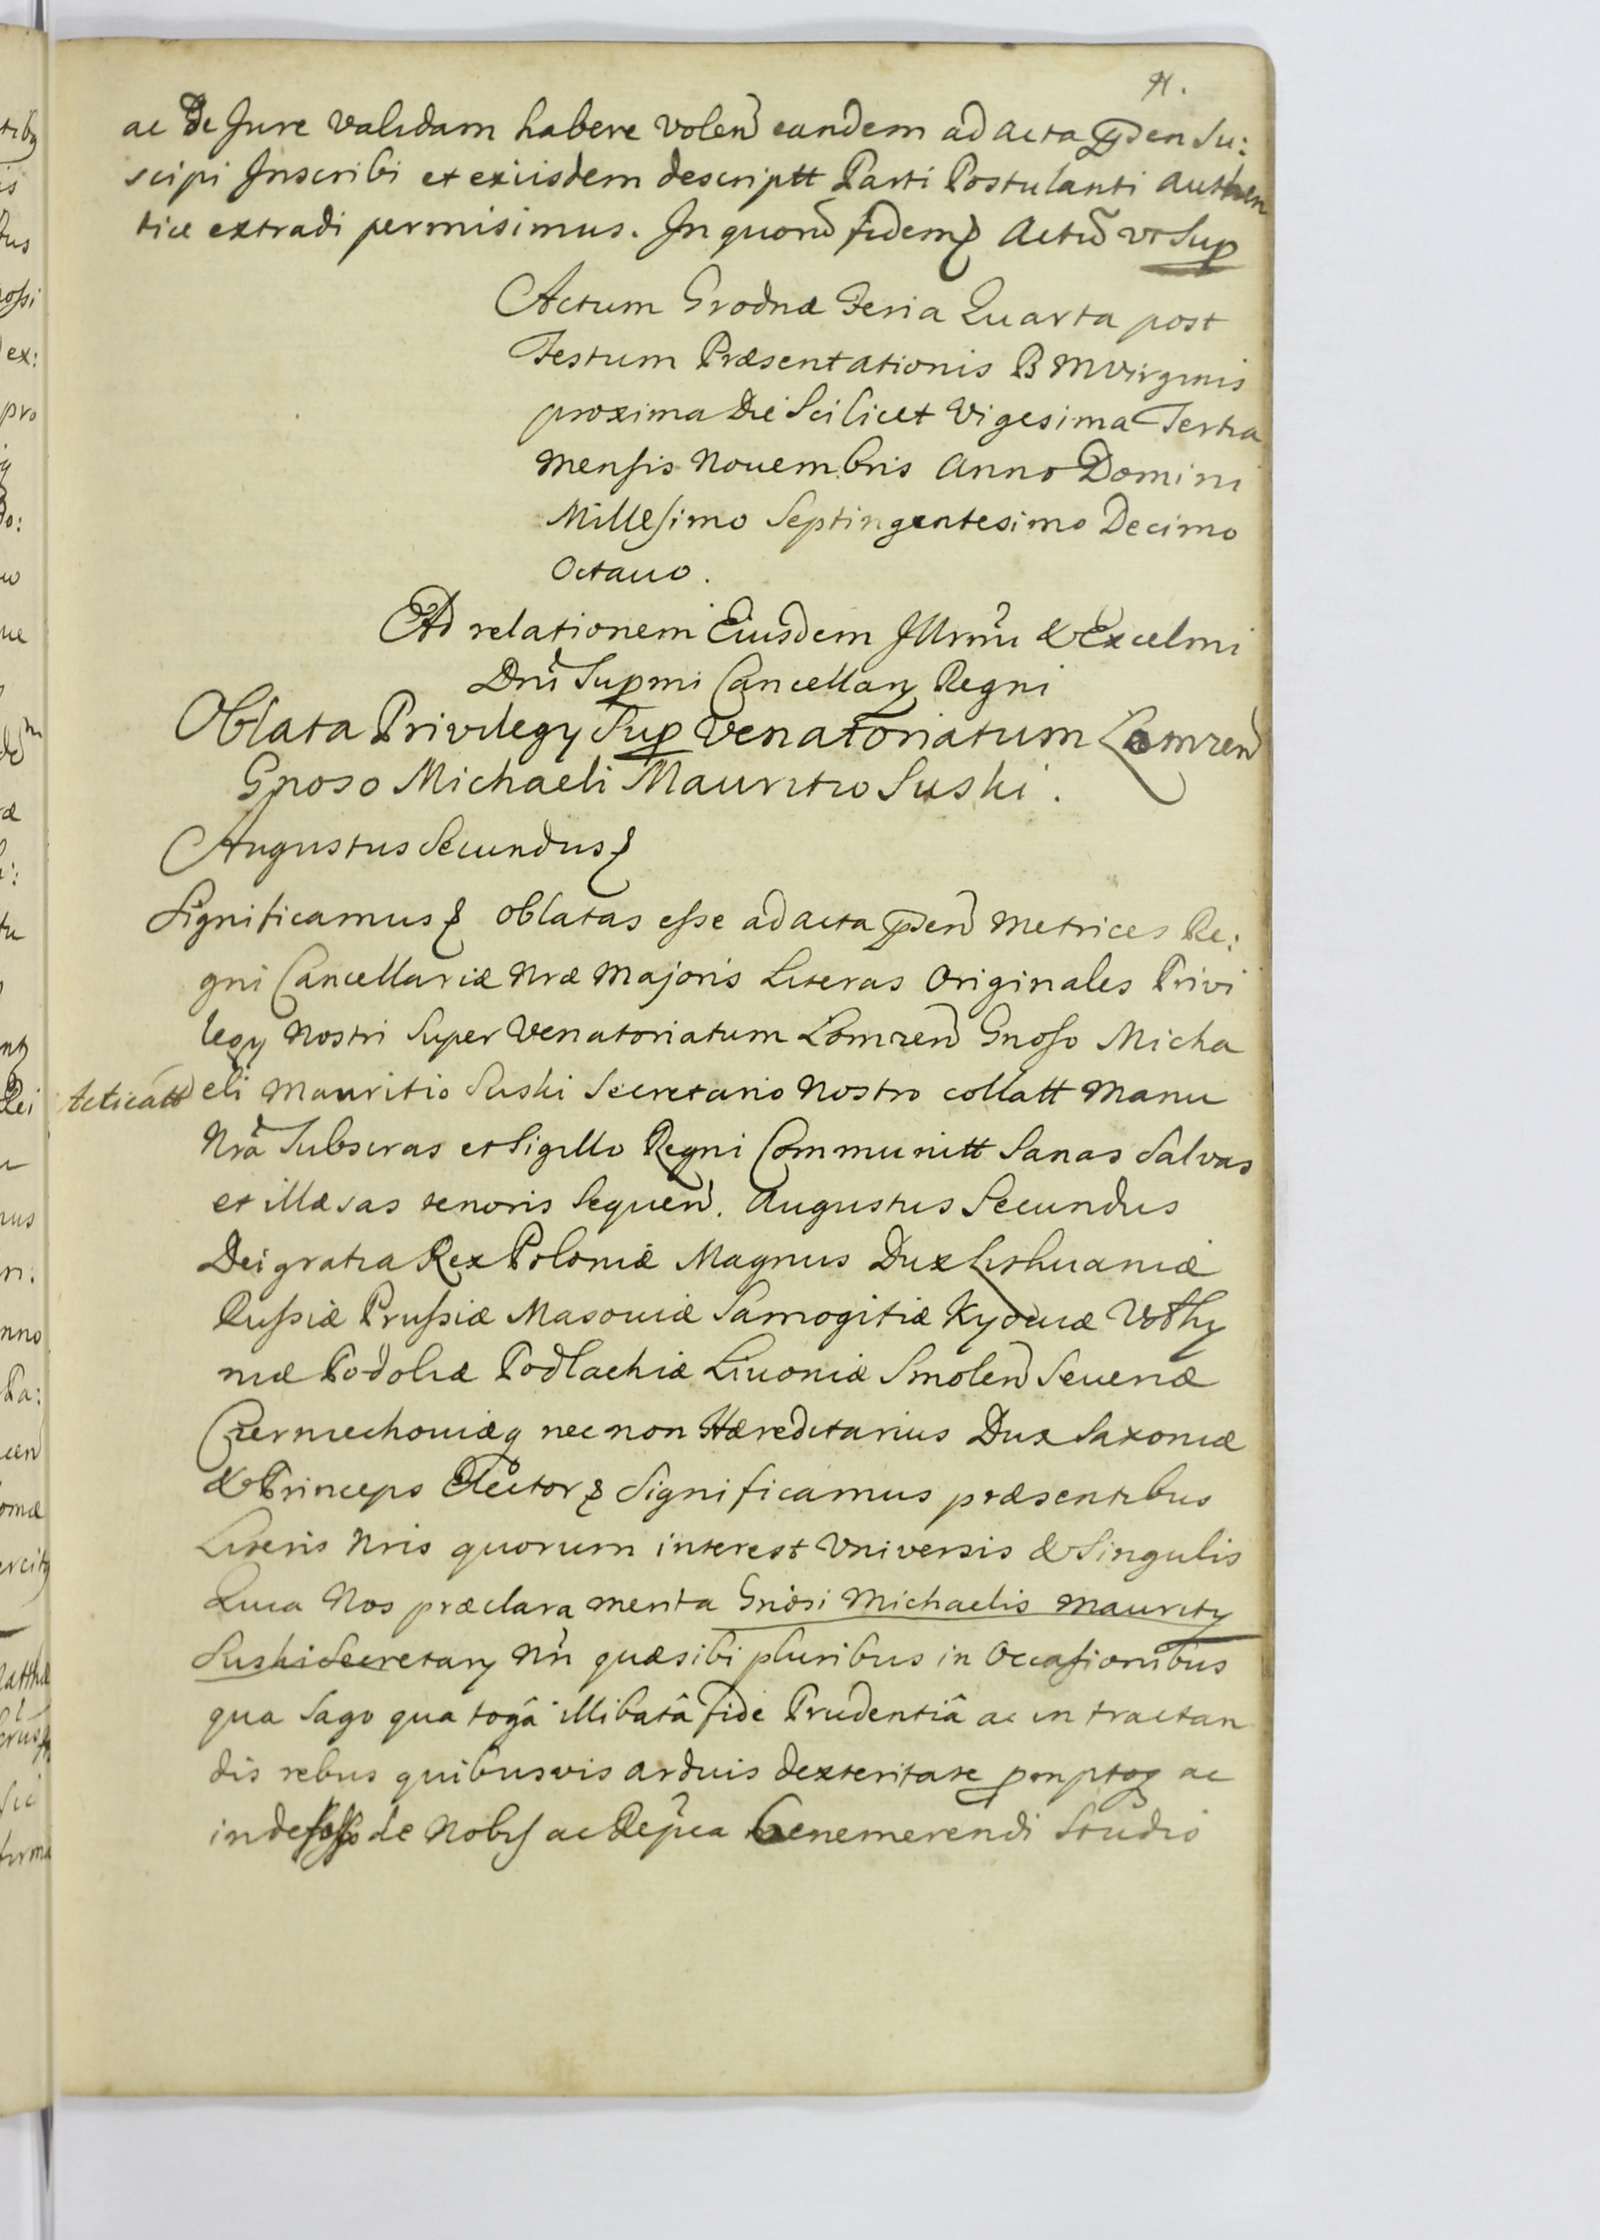 91.
ac de Jure validam habere volen eandem ad acta pñden Su:
scipi Inscribi et exiusdem descriptt Parti Postulanti authen
tice extradi permisimus. In quorũ fidem & Actũ ut Sup
Actum Grodnæ Feria Quarta post
Festum Præsentationis B M Virginis
proxima Die Scilicet Vigesima Tertia
Mensis Nouembris Anno Domini
Millesimo Septingentesimo Decimo
Octauo.
Ad relationem Eiusdem Illrmi & Excelmi
Dni Supmi Cancellarÿ Regni
Oblata Privilegÿ Sup Venatoriatum Lomzen
Gnoso Michaeli Mauritio Suski.
Augustus Secundus &
Significamus & oblatas esse ad acta pñden Metrices Re:
gni Cancellariæ Nræ Majoris Literas Originales Privi
legÿ Nostri Super Venatoriatum Lomzen Gnoso Micha
Acticatt
eli Mauritio Suski Secretario Nostro collatt Manu
Nrã Subscras et Sigillo Regni Communitt Sanas Salvas
et illæsas tenoris Sequen. Augustus Secundus
Dei gratia Rex Poloniæ Magnus Dux Lithuaniæ
Russiæ Prussiæ Masouiæ Samogitiæ Kyouiæ Volhy
niæ Podoliæ Podlachiæ Liuoniæ Smolen Seueriæ
Czerniechouiæq nec non Hæreditarius Dux Saxoniæ
& Princeps Elector & Significamus præsentibus
Literis Nris quorum interest Universis & Singulis
Quia Nos præclara merita Gnosi Michaelis Mauritÿ
Suski Secretarÿ Nri quæ sibi pluribus in Occasionibus
qua Sago qua togâ illibatâ fide Prudentiâ ac in tractan
dis rebus quibusvis arduis dexteritate promptoq ac
indefesso de Nobis ac Repca benemerendi Studio